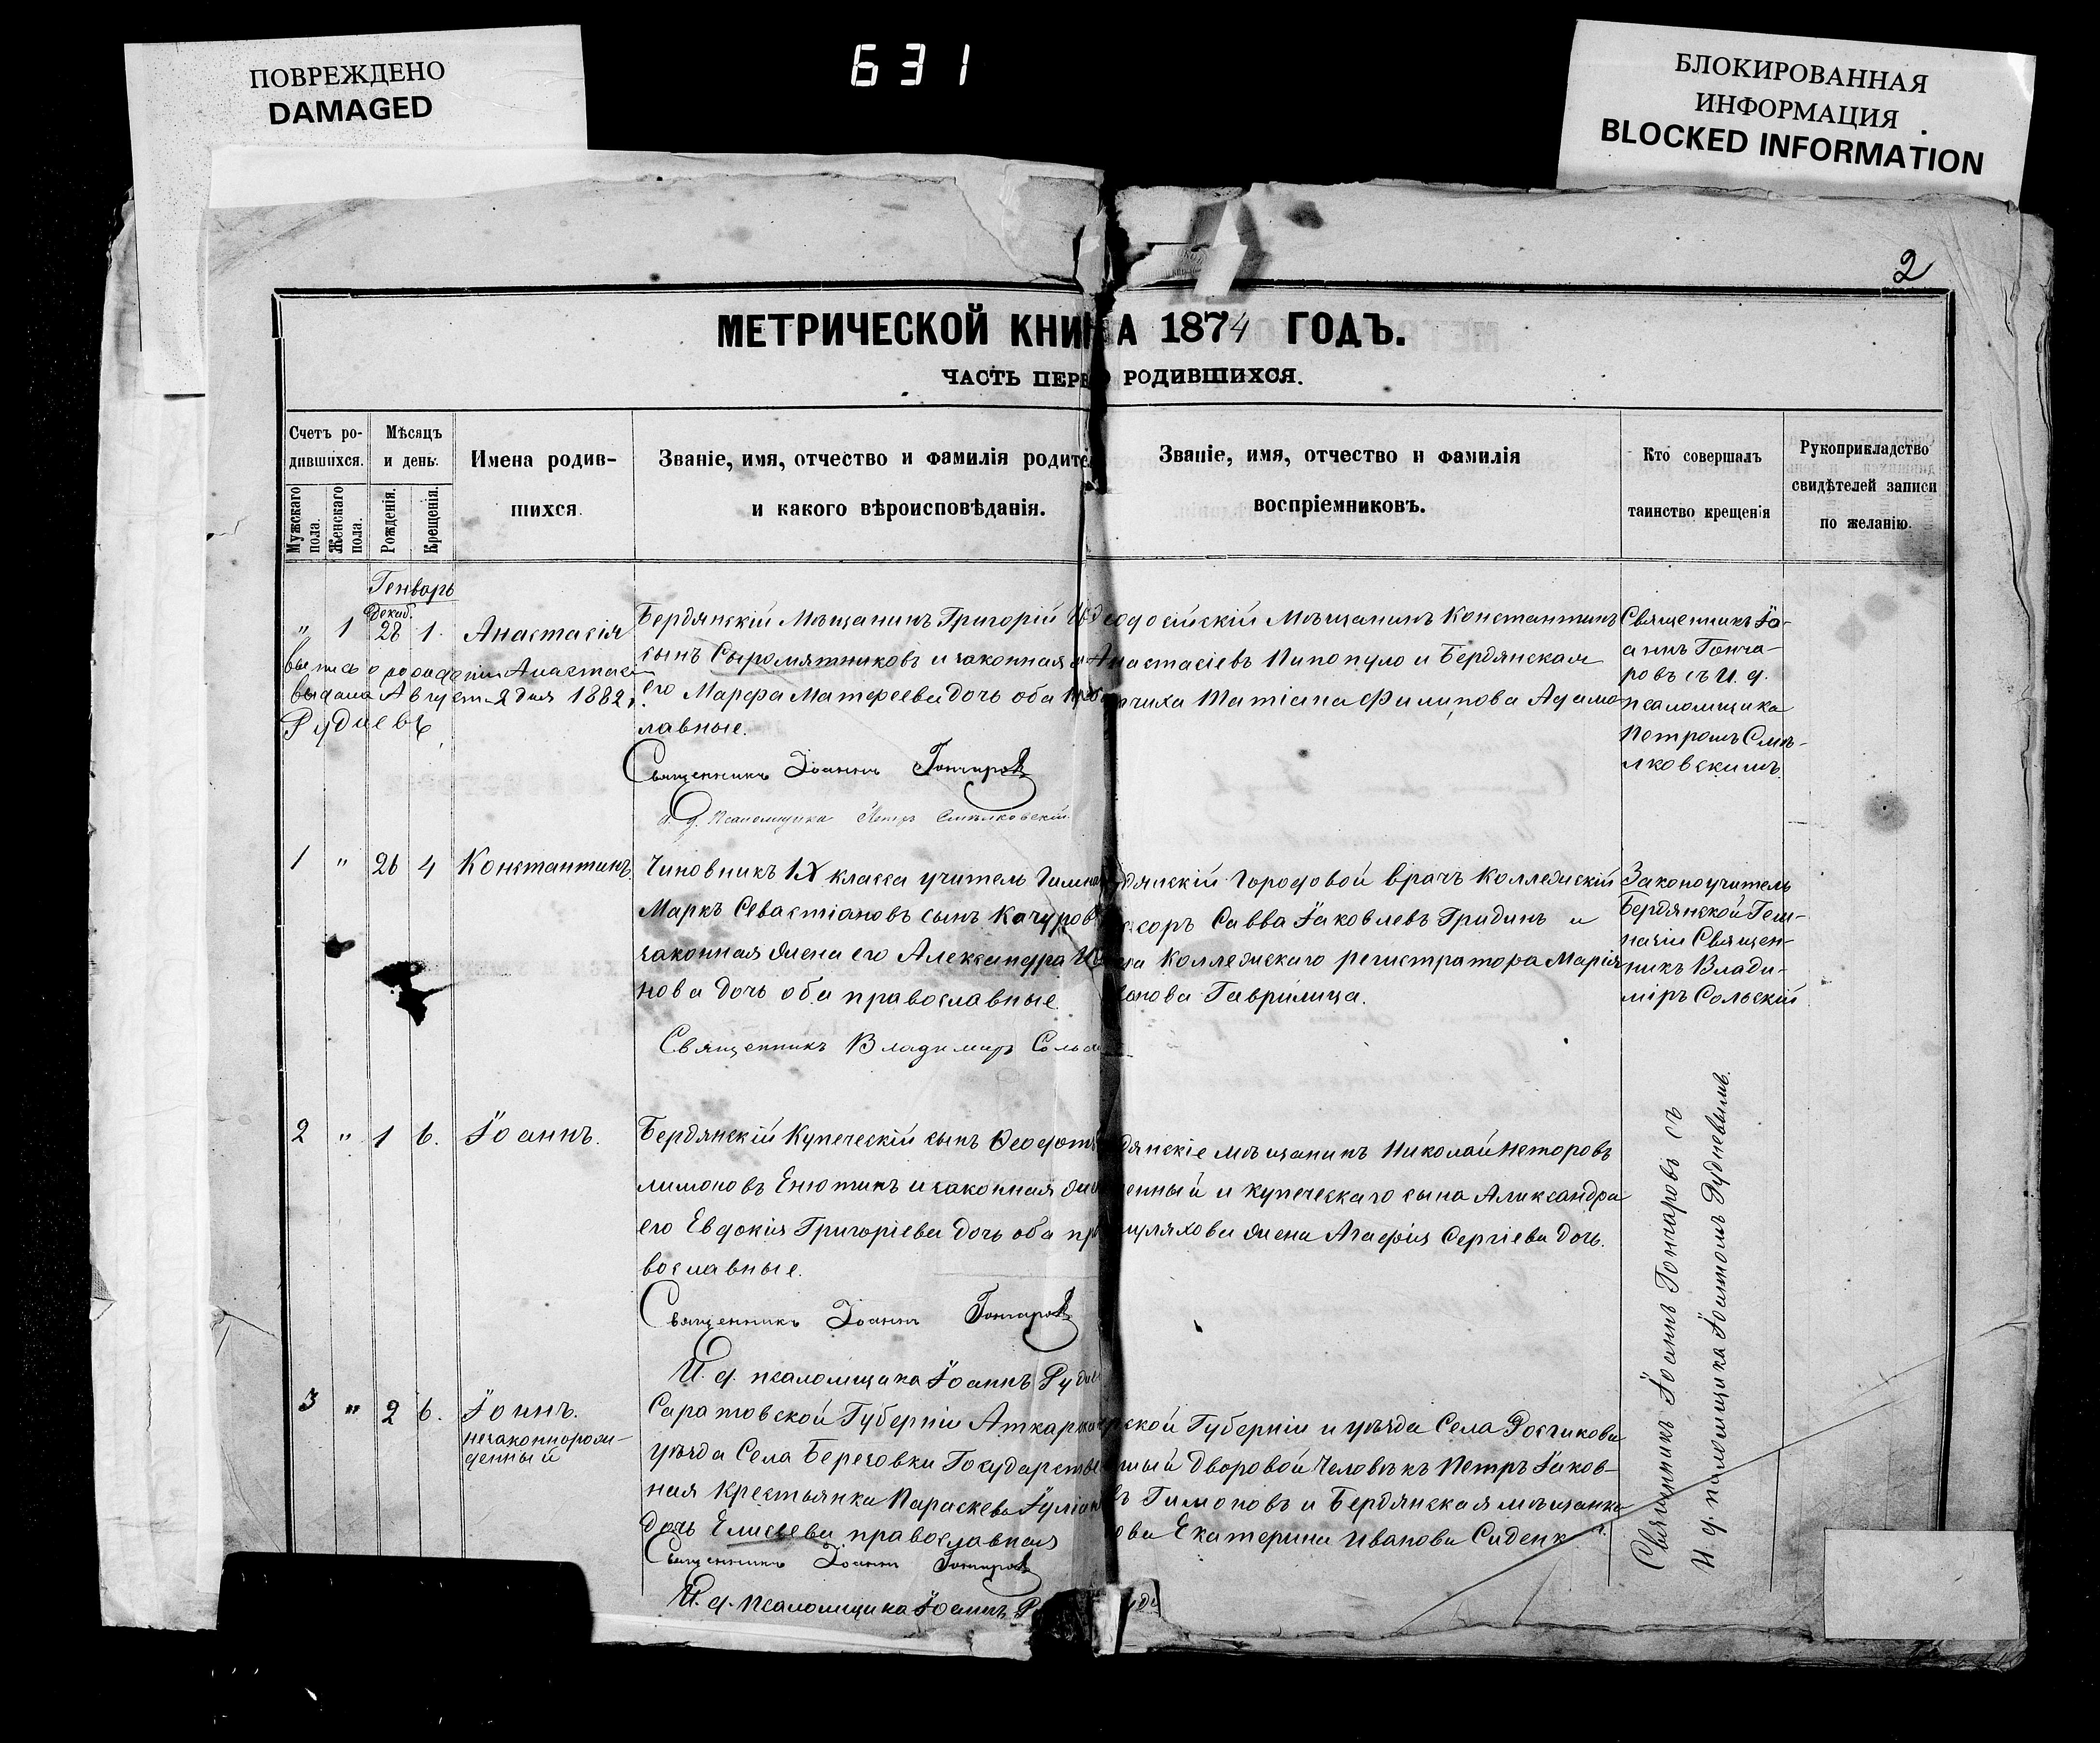 ПОВРЕЖДЕНО
DAMAGED
631
БЛОКИРОВАННАЯ
ИНФОРМАЦИЯ
BLOCKED INFORMATION
2
МЕТРИЧЕСКОЙ КНИ А 1874 ГОДЪ.
ЧАСТЬ ПЕРВ РОДИВШИХСЯ.
Счетъ ро-
дившихся.
Мужскаго пола.
Женскаго пола.
Мѣсяцъ
и день.
Рожденія.
Крещенія.
Имена родив-
шихся.
Званіе, имя, отчество и фамилія родите
и какого вѣроисповѣданія.
Званіе, имя, отчество и фамилія
воспріемниковъ.
Кто совершалъ
таинство крещенія
Рукоприкладство
свидѣтелей записи
по желанію.
Генварь
Декаб.
" 1 28 1. Анастасія
выдана Август. 2 дня 1882 г.
Рудневъ
Бердянскій Мѣщанинъ Григорій
сынъ Сыромятниковъ и законная
его Марфа Матфеева дочь оба
лавные.
Священникъ Іоаннъ Гончаровъ
И. д. псаломщика Петръ Смѣлковскій
еодосійскій Мѣщанинъ Константинъ
Анастасіевъ Пипопуло и Бердянская
чиха Татіана Филипова Адамо-
Священникъ Іо-
аннъ Гонча-
ровъ съ И. д.
псаломщика
Петромъ Смѣ-
лковскимъ.
1 " 26 4 Константинъ
Чиновникъ IX класса учитель Гимна
Маркъ Севастіановъ сынъ Качуров
законная жена его Александра
нова дочь оба православные
Священникъ Владимиръ Сольс
дянскій Городовой врачъ Коллежскій
ссоръ Савва Іаковлевъ Гридинъ и
на Коллежскаго регистратора Марія
ванова Гаврилица.
Законоучитель
Бердянской Гим-
назіи Священ-
никъ Влади-
міръ Сольскій
2 " 1 6. Іоаннъ.
Бердянскій Купеческій сынъ Феодотъ
лимоновъ Енютинъ и законная
его Евдокія Григоріева дочь оба пр
вославные.
Священникъ Іоаннъ Гончаровъ
И. д. псаломщика Іоаннъ Рудн
дянскіе мѣщанинъ Николай Несторовъ
енный и купеческаго сына Александра
шляхова жена Агафія Сергіева дочь.
3 " 2 6. Іоаннъ.
незаконнорож-
денный
Саратовской Губерніи Аткарска
уѣзда Села Березовки Государстве
ная крестьянка Параскева Іуліан
дочь Елисѣева православная
Священникъ Іоаннъ Гончаровъ
И. д. псаломщика Іоаннъ Р
рской Губерніи и уѣзда Села
шый дворовой человѣкъ Петръ Іаков-
въ Тимоновъ и Бердянская мѣщанка
ова Екатерина Иванова Сиденк
Священникъ Іоаннъ Гончаровъ съ
И. д. псаломщика Іоанномъ Рудневымъ.